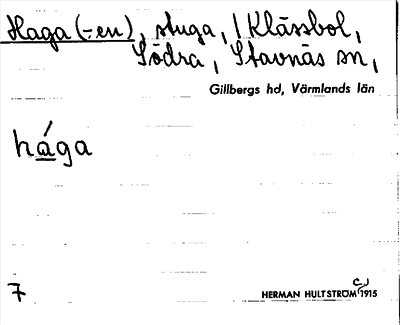 Haga (-en), stuga, / Klässbol,
Södra, Stavnäs sn,
Gillbergs hd, Värmlands län
hága
7
HERMAN HULTSTRÖM 1915